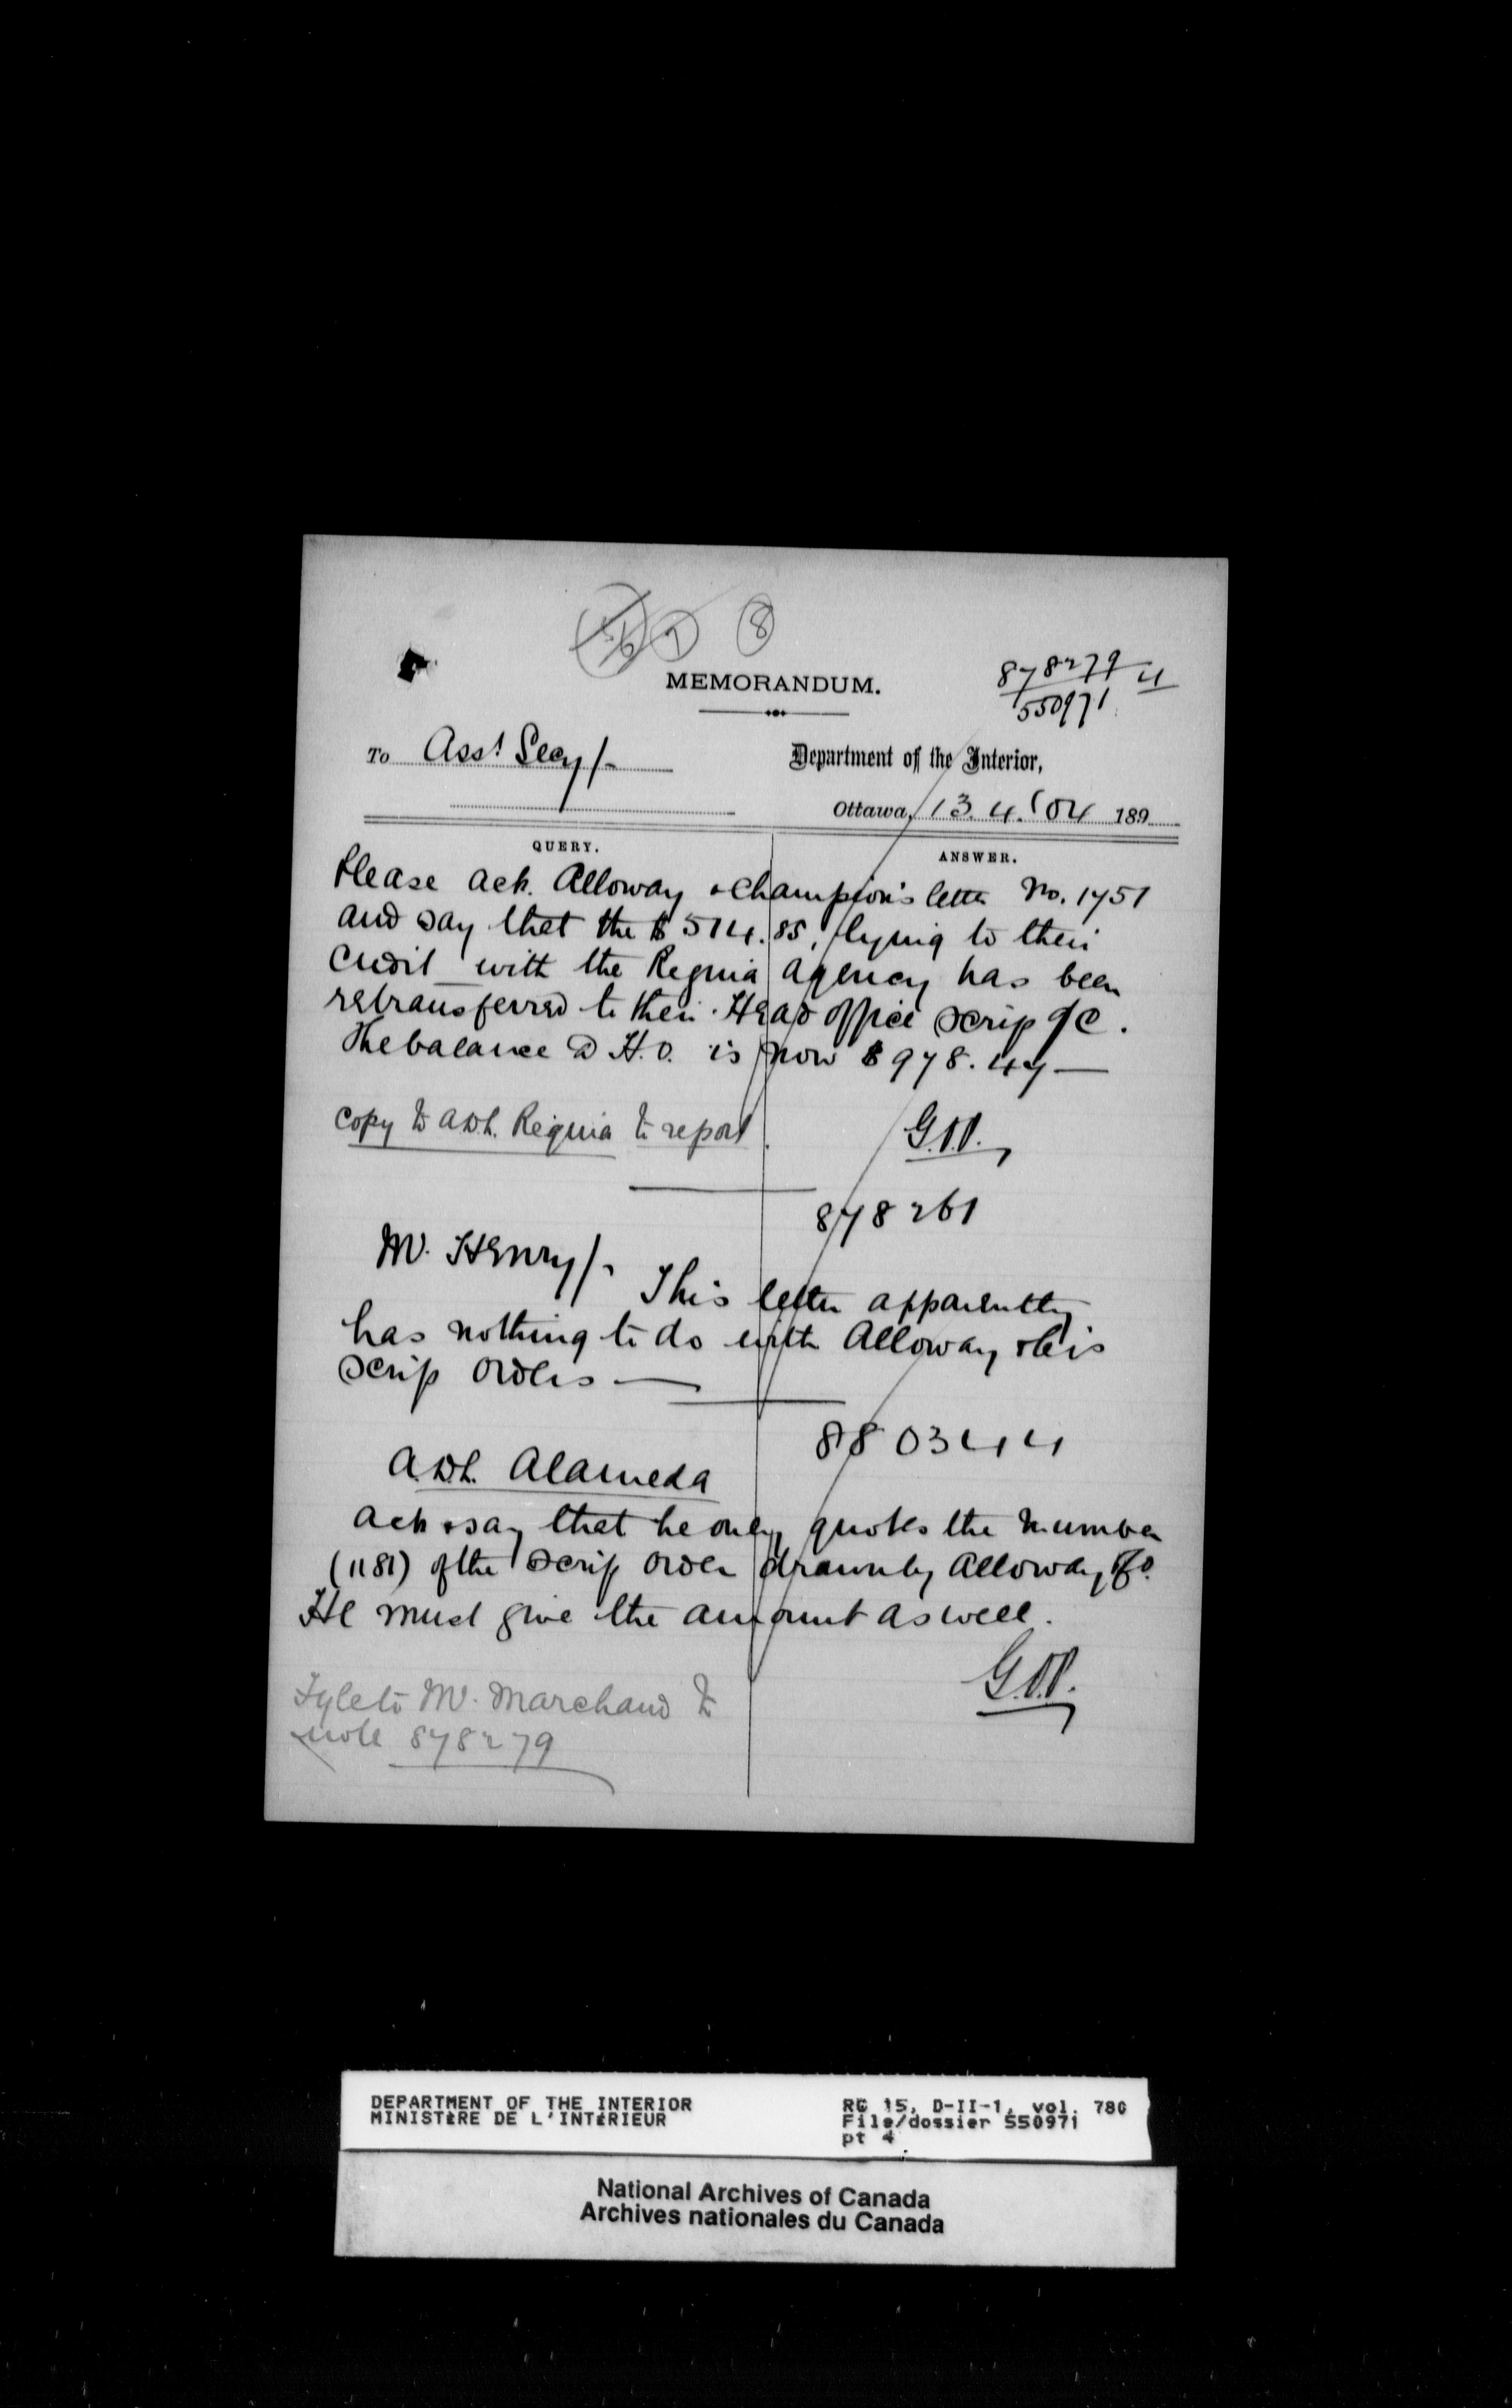 8
MEMORANDUM.
878279
550971
4
To Asst Secy/-
Department of the Interior,
Ottawa, 13.4.'04 189
QUERY.
ANSWER.
Please ack. Alloway & Champion's letter No. 1751
and say that the $514.85, lying to their
credit with the Regina Agency has been
retransferred to their Head Office Scrip a/c.
The balance @ H.O. is now $978.47 —
Copy to A.D.L. Regina to report
878261
Mr. Henry/-
This letter apparently
has nothing to do with Alloway
Scrip orders —
880344
A.D.L. Alameda
Ack & say that he only quotes the number
(1181) of the Scrip order drawn by Alloway
He must give the amount as well.
Fyle to Mr. Marchand to
note 878279
DEPARTMENT OF THE INTERIOR
MINISTÈRE DE L'INTÉRIEUR
RG 15, D-II-1, vol. 780
File/dossier 550971
pt 4
National Archives of Canada
Archives nationales du Canada